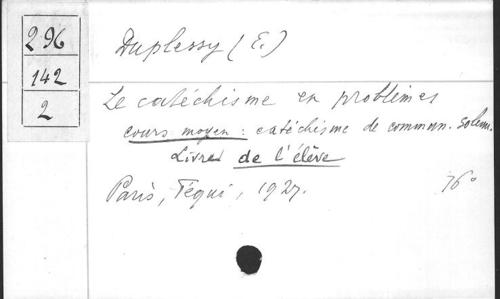 296
142
2
Duplessy (E.)
Le catéchisme en problèmes
cours moyen : catéchisme de commun. solenn.
Livre de l'élève
Paris, Téqui, 1927.
76°